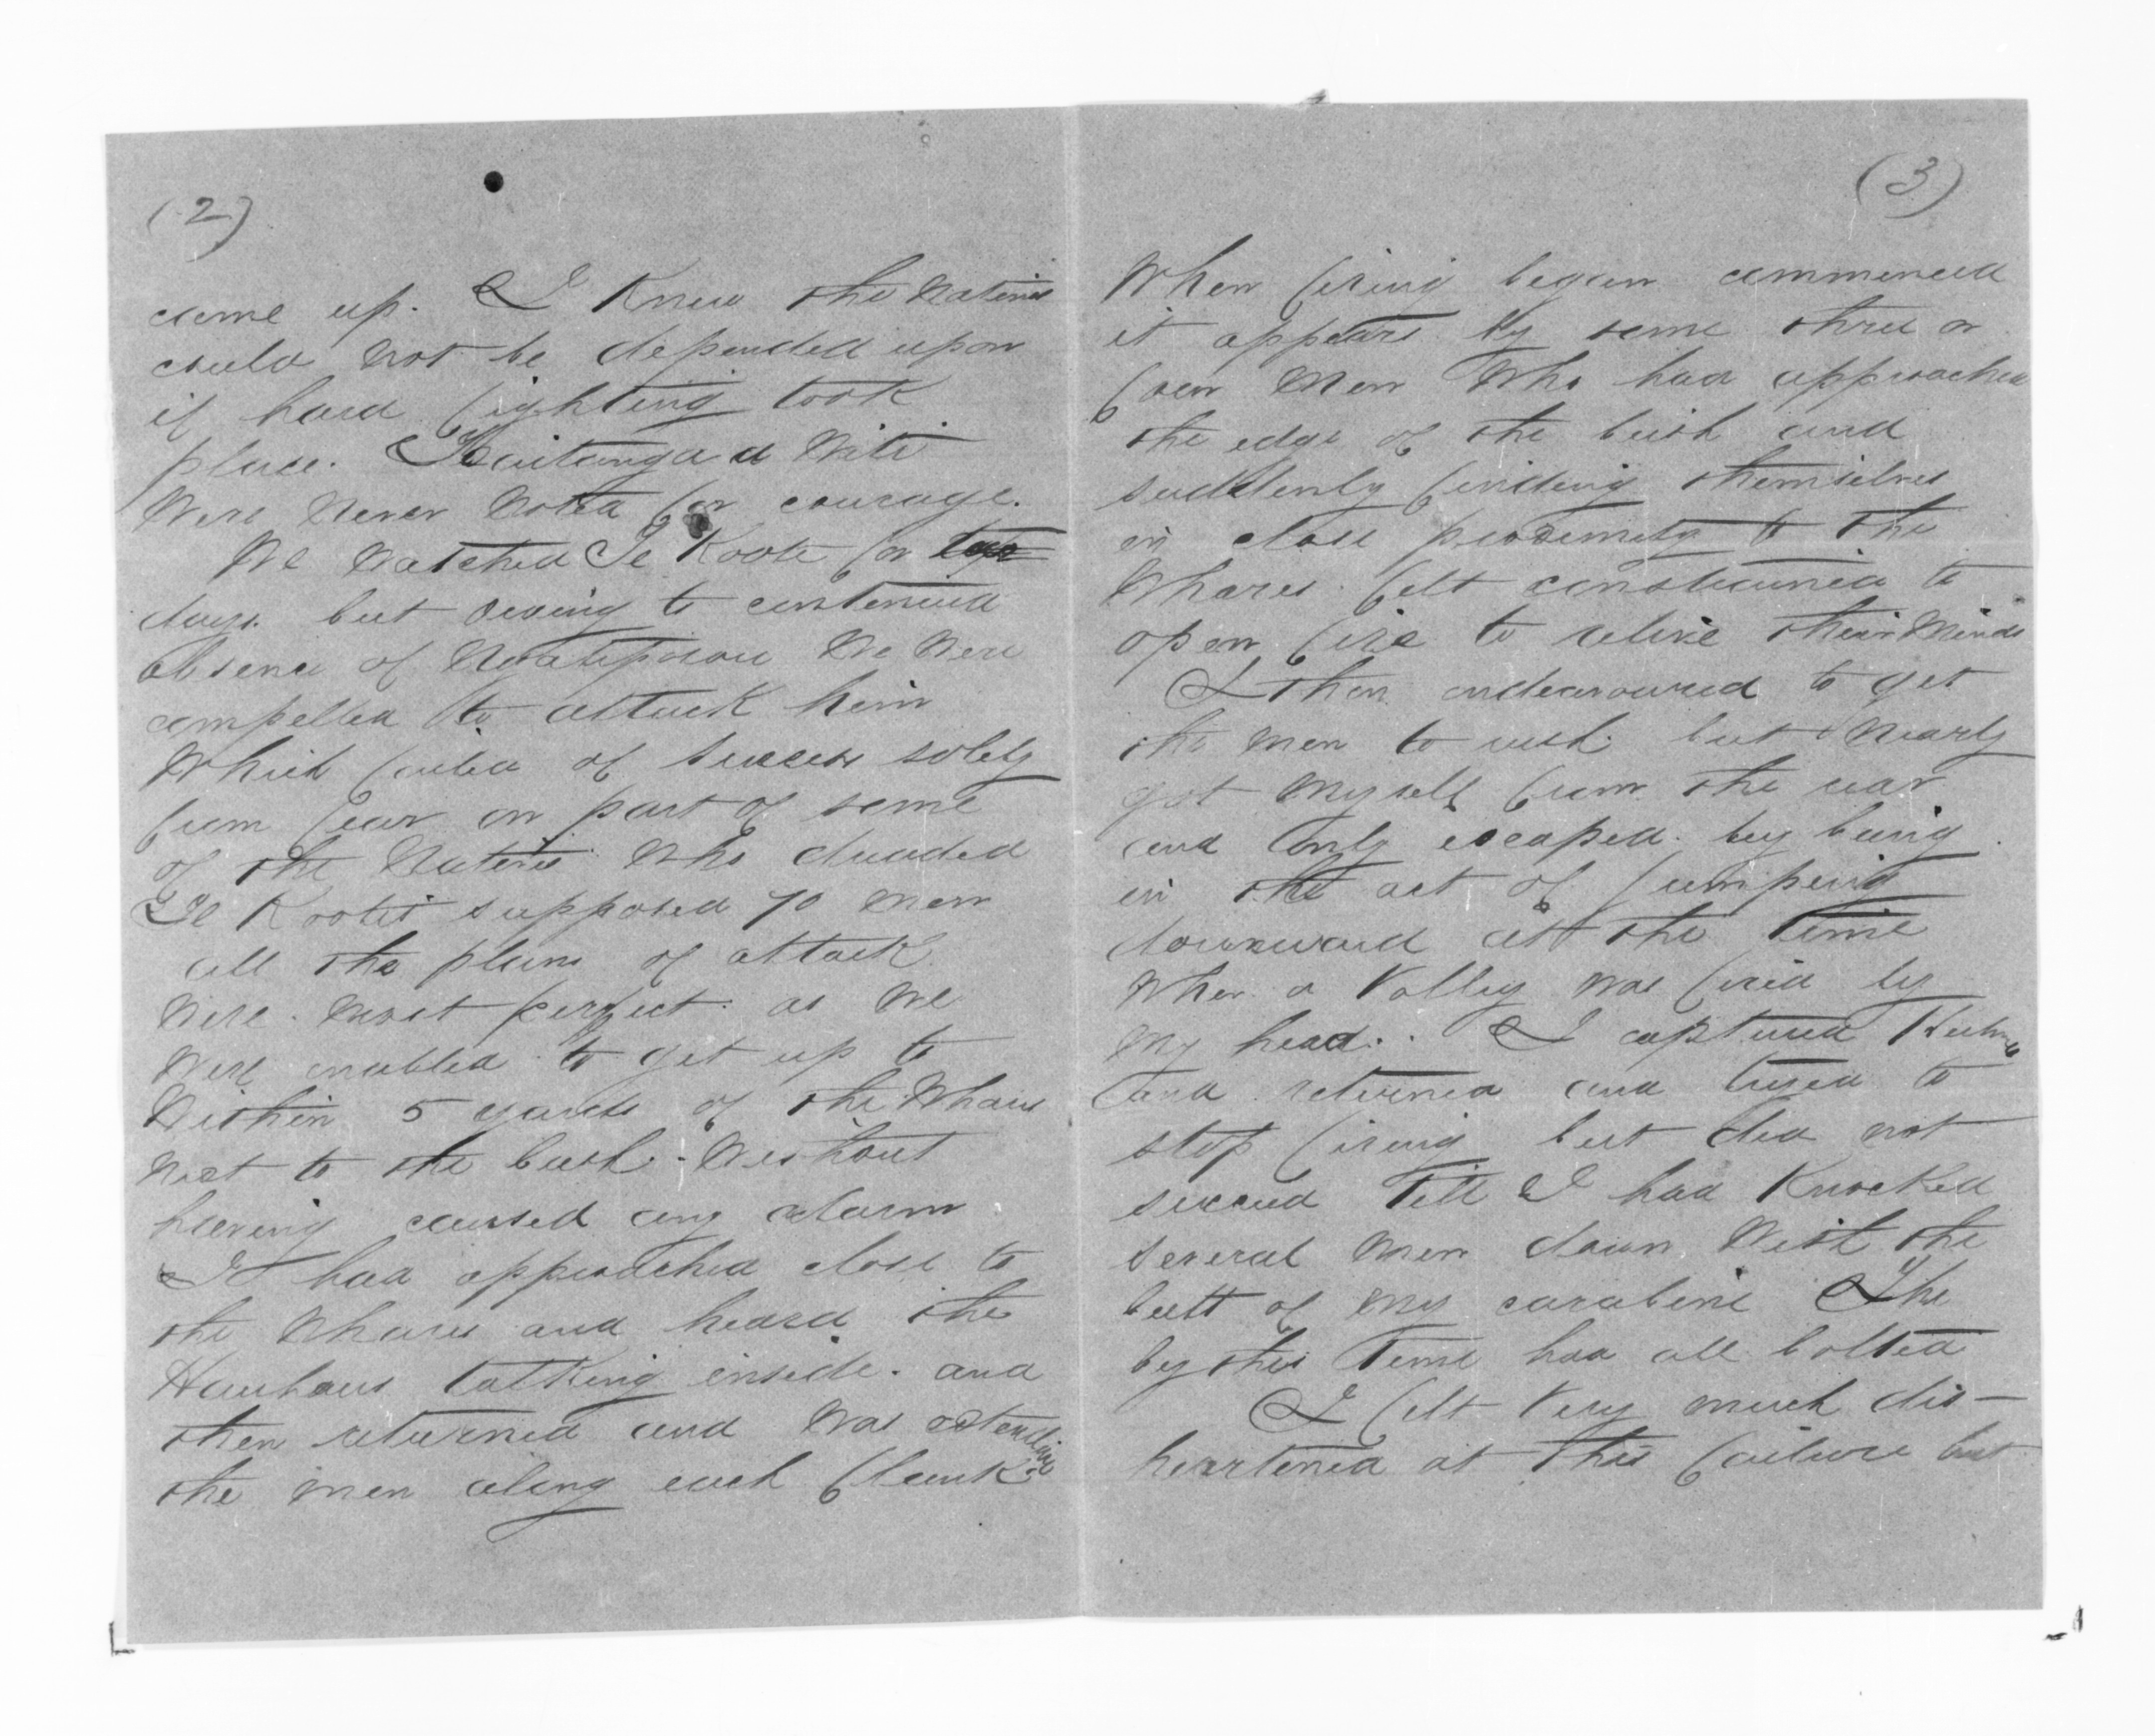 (2)
came up. I Knew the Natives
could not be depended upon
if hard fighting took
place.
Were Never Noted for courage.
We Watched Te Kooti for
days. but owing to continued
absence of Ngatiporou We Were
compelled to attack him
Which failed of success solely
from fear on part of some
of the Natives Who dreaded
Te Kooti's supposed 70 men
all the plans of attack
Were. Most perfect. as We
Were enabled to get up to
Within 5 yards of the Whares
Next to the bush. Without
having caused any alarm
I had approached close to
the Whares and heard the
Hauhaus talking inside. and
then returned and Was extending
the men along each flank
(3)
When firing began commenced
it appears by some three or
four Men Who had approached
the edge of the bush and
suddenly finding themselves
in close proximity to the
Whares. felt constrained to
open fire to relive their Minds
I then endeavoured to get
the men to rush. but Nearly
got Myself from the rear
and only escaped. by being
in the act of jumping
downward at the time
When a Volley Was fired by
My head. I captured
and returned and tryed to
stop firing but did not
succeed Till I had Knocked
several Men down With the
butt of My carabine The
by this Time had all bolted
I felt Very much dis-
heartened at this failure but